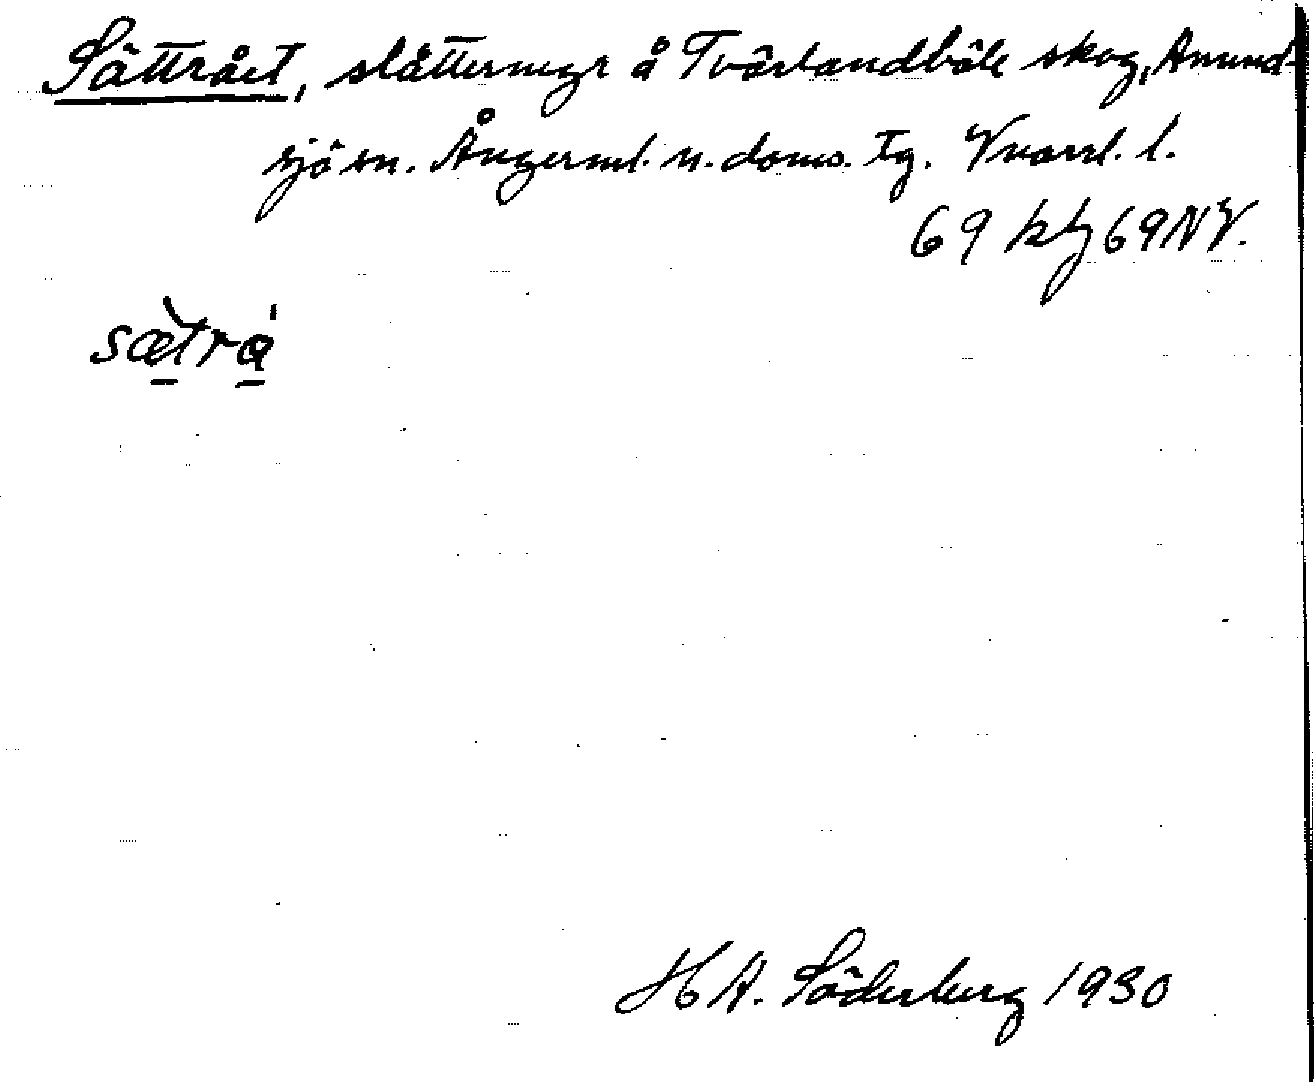 Sättrået, slåttermyr å Tvärlandböle skog, Anund-
sjö sn. Ångerml. n. doms. tg. Vnorrl. l.
69 kbl 69 NV.
sætrá
H A. Söderberg 1930